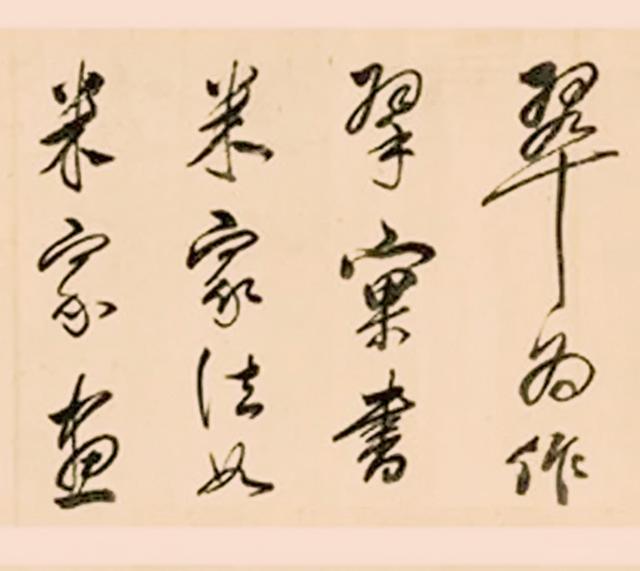 翠為作
擘窠書
米家法如
米家畫